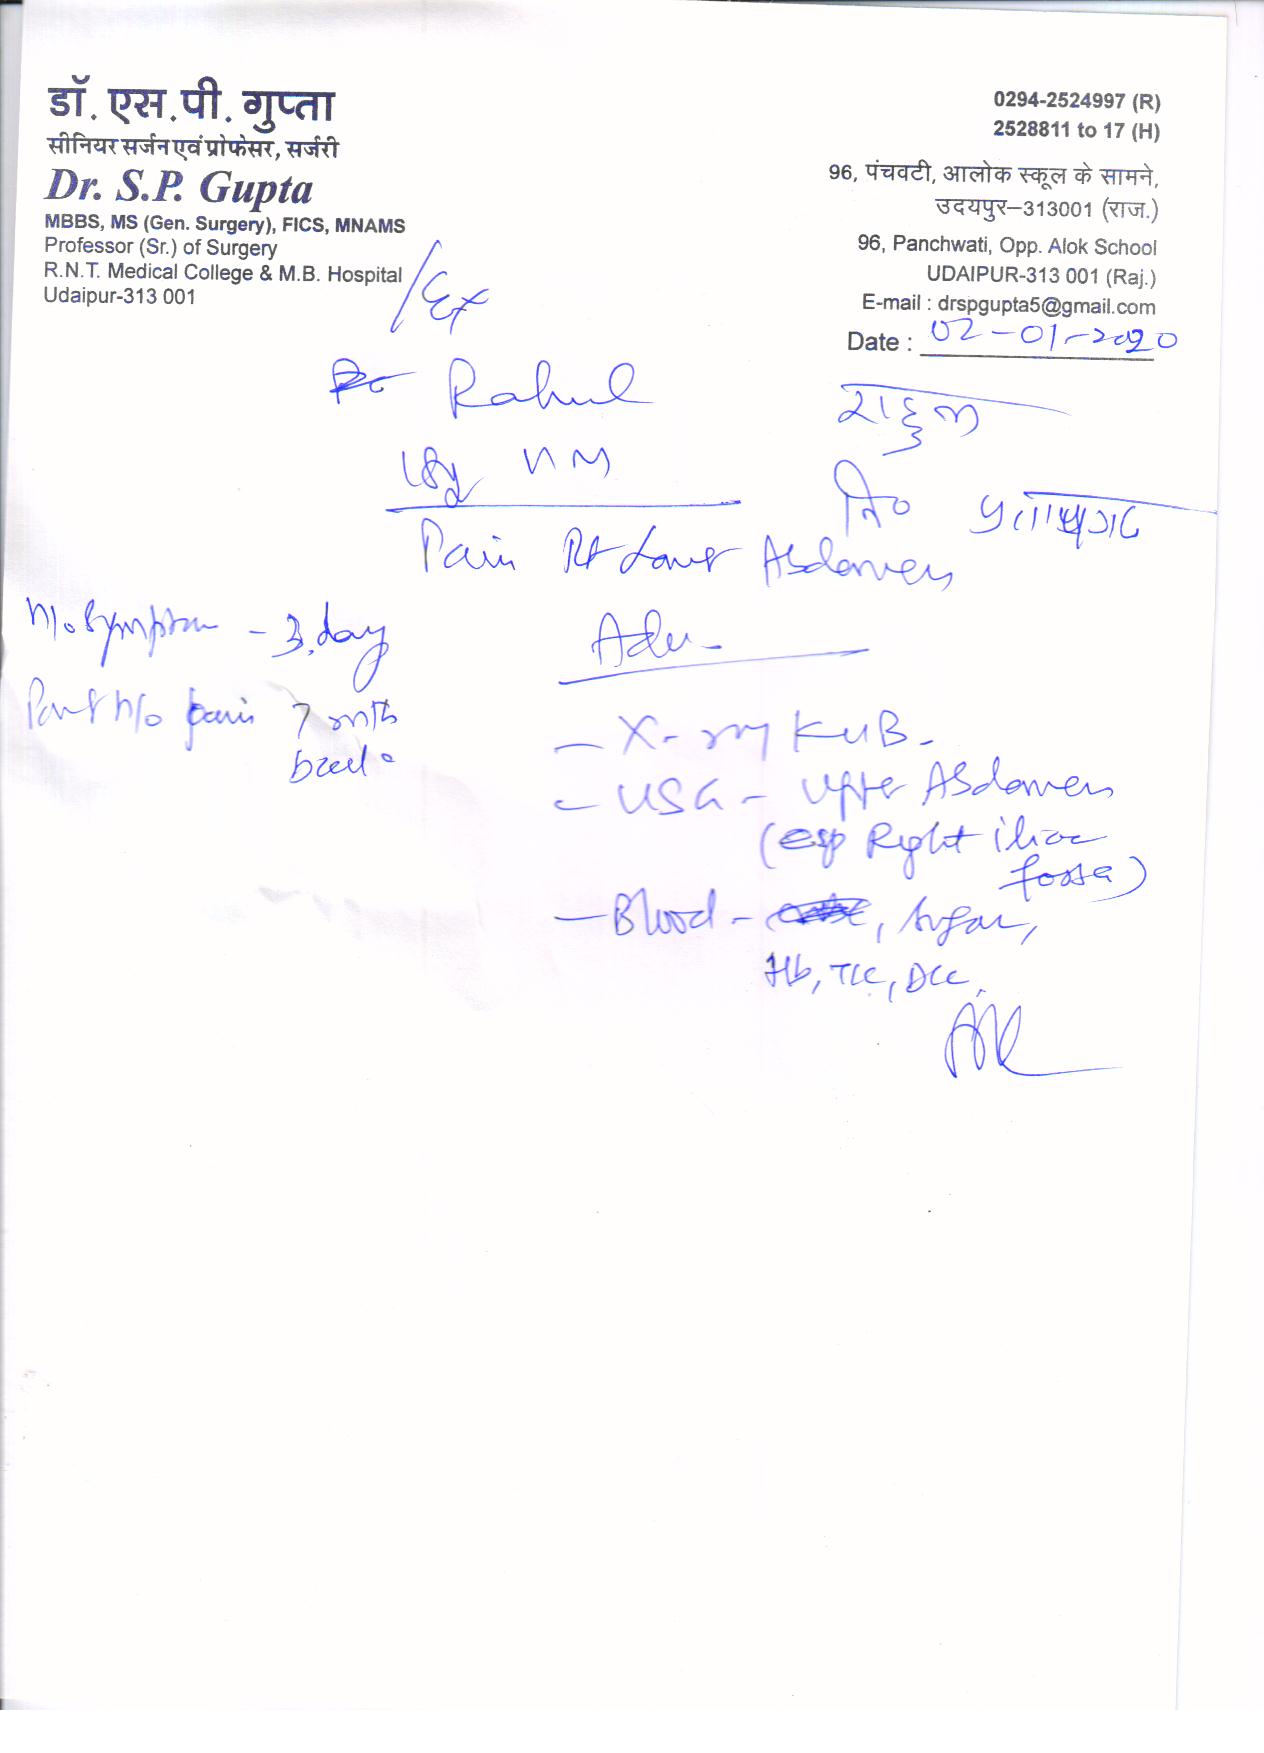 डॉ. एस.पी. गुप्ता
सीनियर सर्जन एवं प्रोफेसर, सर्जरी
Dr. S.P. Gupta
MBBS, MS (Gen. Surgery), FICS, MNAMS
Professor (Sr.) of Surgery
R.N.T. Medical College & M.B. Hospital
Udaipur-313 001
0294-2524997 (R)
2528811 to 17 (H)
96, पंचवटी, आलोक स्कूल के सामने,
उदयपुर–313001 (राज.)
96, Panchwati, Opp. Alok School
UDAIPUR-313 001 (Raj.)
E-mail : drspgupta5@gmail.com
Date : 02-01-2020
Rahul
राहुल
नि०
Pain Rt Lower Abdomen
H/o Symptom - 3 day
Past h/o pain 7 mth
back
Adv -
- X-ray KUB -
- USG - Upper Abdomen
(esp Right iliac
fossa)
- Blood - , Sugar,
Hb, TLC, DLC,